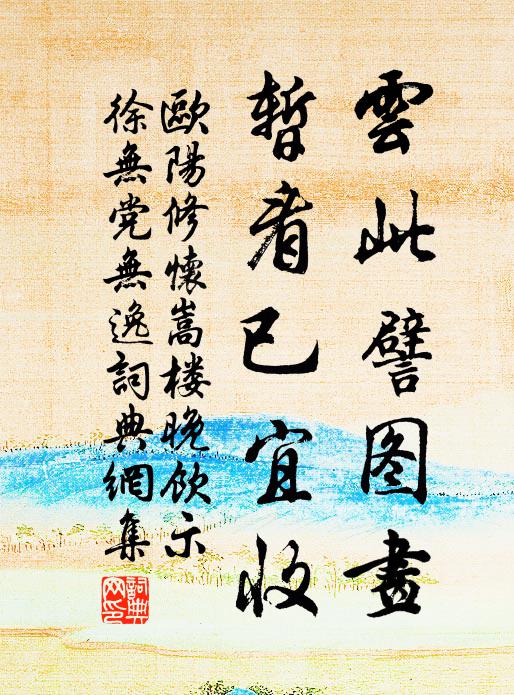 雲此譬图畫
暫看已宜收
歐陽修懷嵩楼晚飲示
徐無党無逸詞典網集
詞典
网印